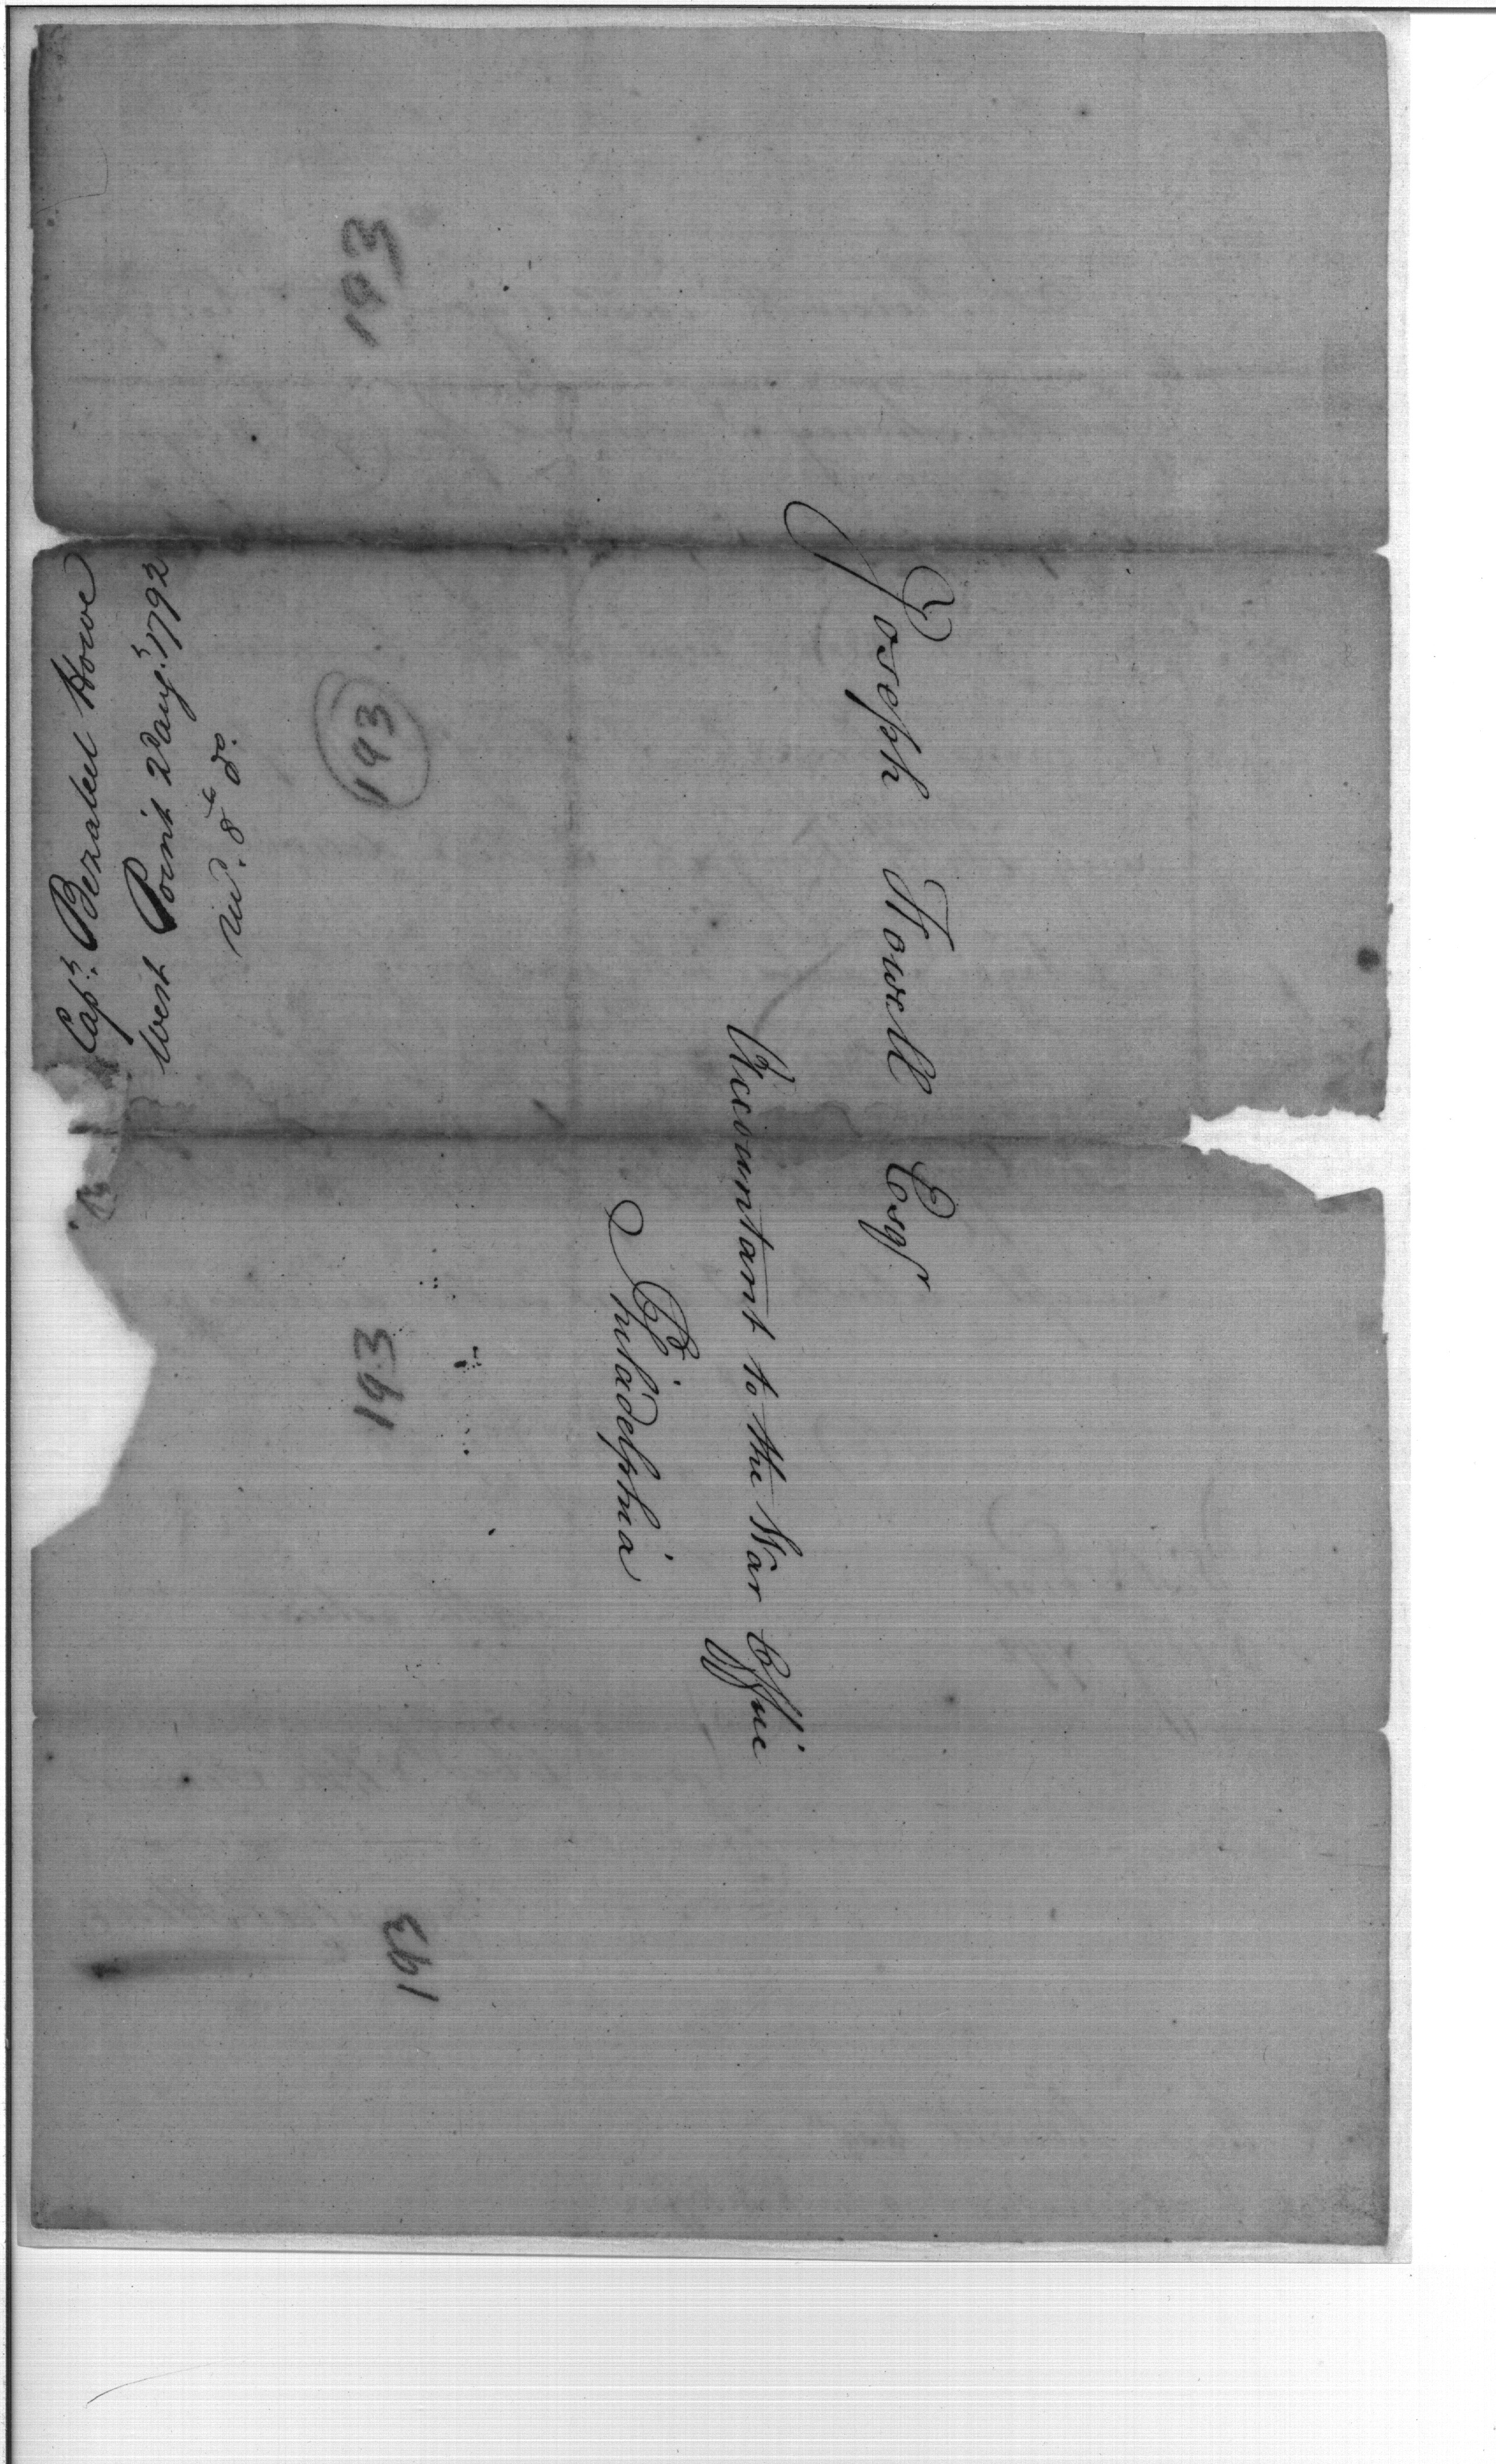 Joseph Howell Esqr
Accountant to the War Office
Philadelphia
Capt. Bezaleel Howe
West Point 2d Augt. 1792
recd. 8th do.
193
193
193
193